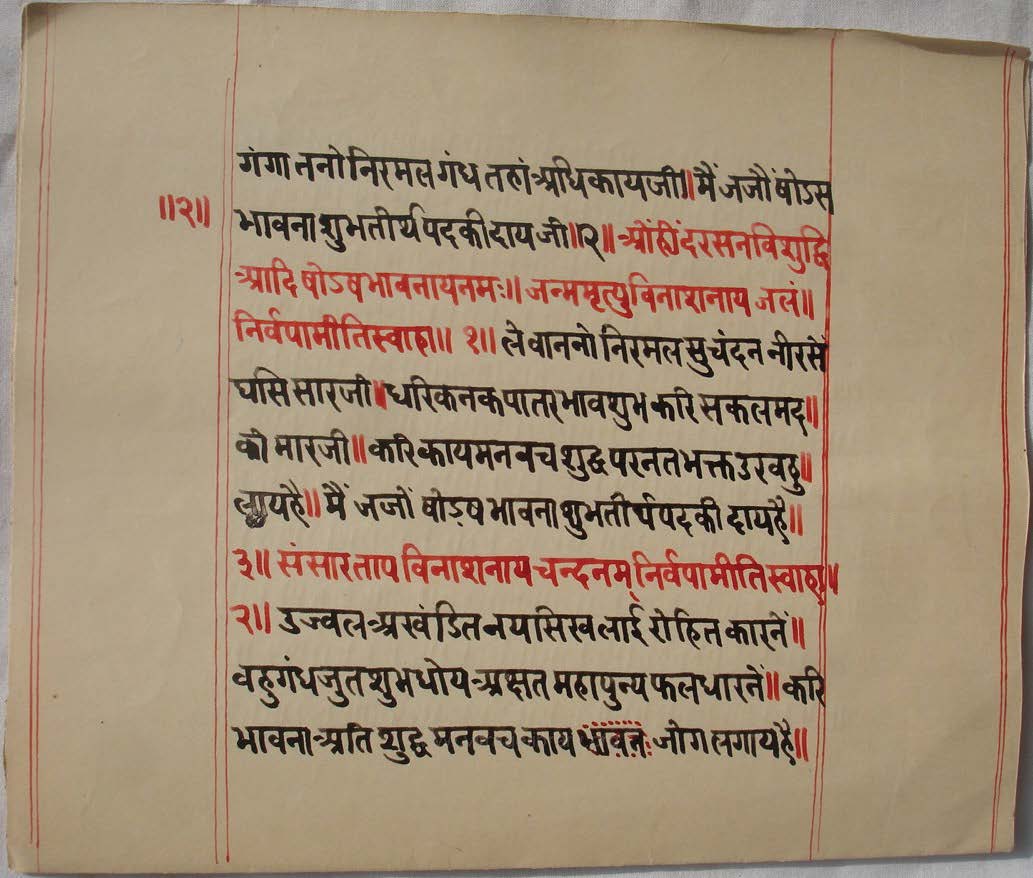 गंगा तनो निरमल गंध तहां अधिकाय जी॥ मैं जजौं षोडस
॥२॥
भावना शुभ तीर्थ पद की दाय जी॥२॥ ओं ह्रीं दरसन विशुद्धि
आदि षोडष भावनाय नमः॥ जन्म मृत्यु विनाशनाय जलं॥
निर्वपामीति स्वाहा॥ १॥ ले वाननो निरमल सुचंदन नीर सें
घसि सार जी॥ धरि कनक पातर भाव शुभ करि सकल मद॥
को मार जी॥ करि काय मन वच शुद्ध परनत भक्त उर वहु॥
ल्याय है॥ मैं जजों षोडष भावना शुभ तीर्थ पद की दाय है॥
३॥ संसार ताप विनाशनाय चन्दनम् निर्वपामीति स्वाहा॥
२॥ उज्वल अखंडित नय सिख लाई रोहित कारनें॥
वहु गंध जुत शुभ धोय अक्षत महा पुन्य फल धारनें॥ करि
भावना अति शुद्ध मन वच काय जोग लगाय है॥